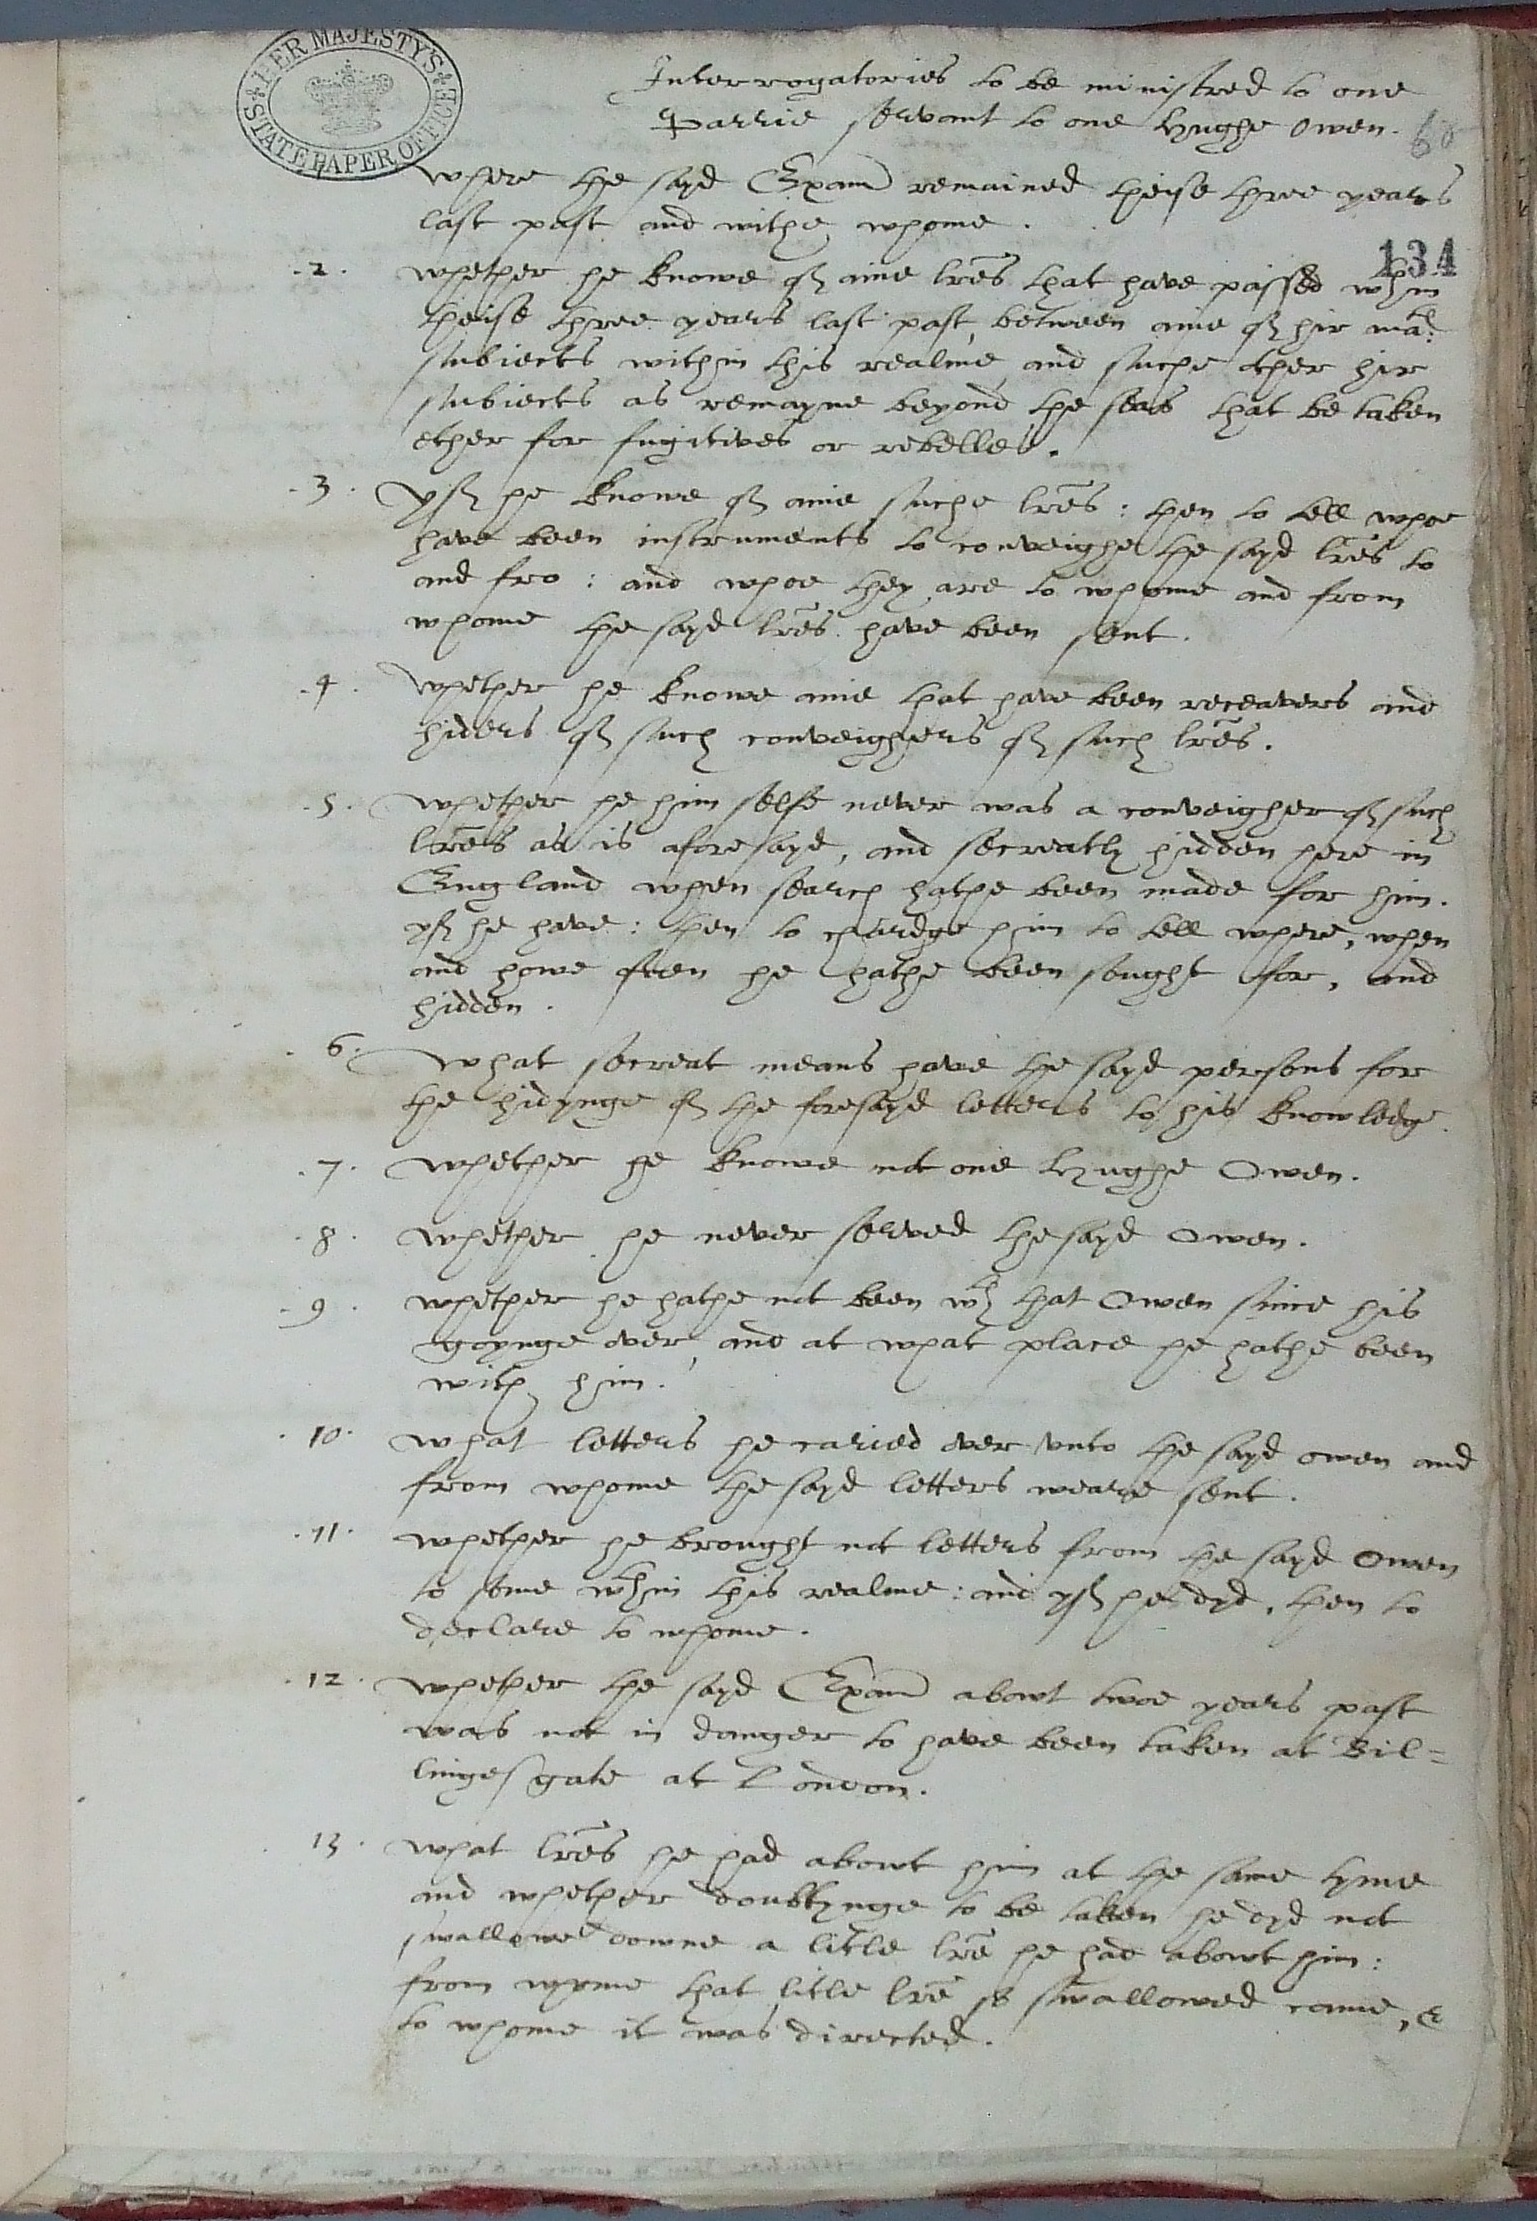 HER MAJESTY'S
STATE PAPER OFFICE
Interrogatories to be ministred to one
Parrie servant to one Hughe Owen.
134
1
Where the sayd Exam remained theise three years
last past and withe whome.
.2. Whether he knowe of anie lres that have passed wthin
theise three years last past, between anie of hir matis
subiects within this realme, and suche other hir
subiects as remayne beyond the seas that be taken
ether for fugitives or rebelles.
.3. Yf he knowe of anie suche lres: then to tell whoe
have been instruments to conveighe the sayd lres to
and fro: and whoe they are to whome and from
whome the sayd lres have been sent.
.4. Whether he knowe anie that have been receavers and
hiders of such conveighers of such lres.
.5. Whether he him selfe never was a conveigher of such
lres as is aforesayd, and secreatly hidden here in
England when search hathe been made for him.
yf he have: then to chardge him to tell where, when
and howe often he hathe been sought for, and
hidden.
.6. What secreat means have the sayd persons for
the hidynge of the foresayd letters to his knowledg.
.7. Whether he knowe not one Hughe Owen.
.8. Whether he never served the sayd Owen.
.9. Whether he hathe not been wth that Owen since his
goynge over, and at what place he hathe been
with him.
.10. What letters he caried over unto the sayd owen and
from whome the sayd letters weare sent.
.11. Whether he brought not letters from the sayd Owen
to some wthin this realme: and yf he dyd, then to
declare to whome.
.12. Whether the sayd Exam about twoe years past
was not in danger to have been taken at Bil=
lingesgate at London.
13. What lres he had about him at the same tyme
and whether doubtynge to be taken he dyd not
swallowe downe a litle lre he had about him:
from whome that litle lre so swallowed came, &
to whome it was directed.